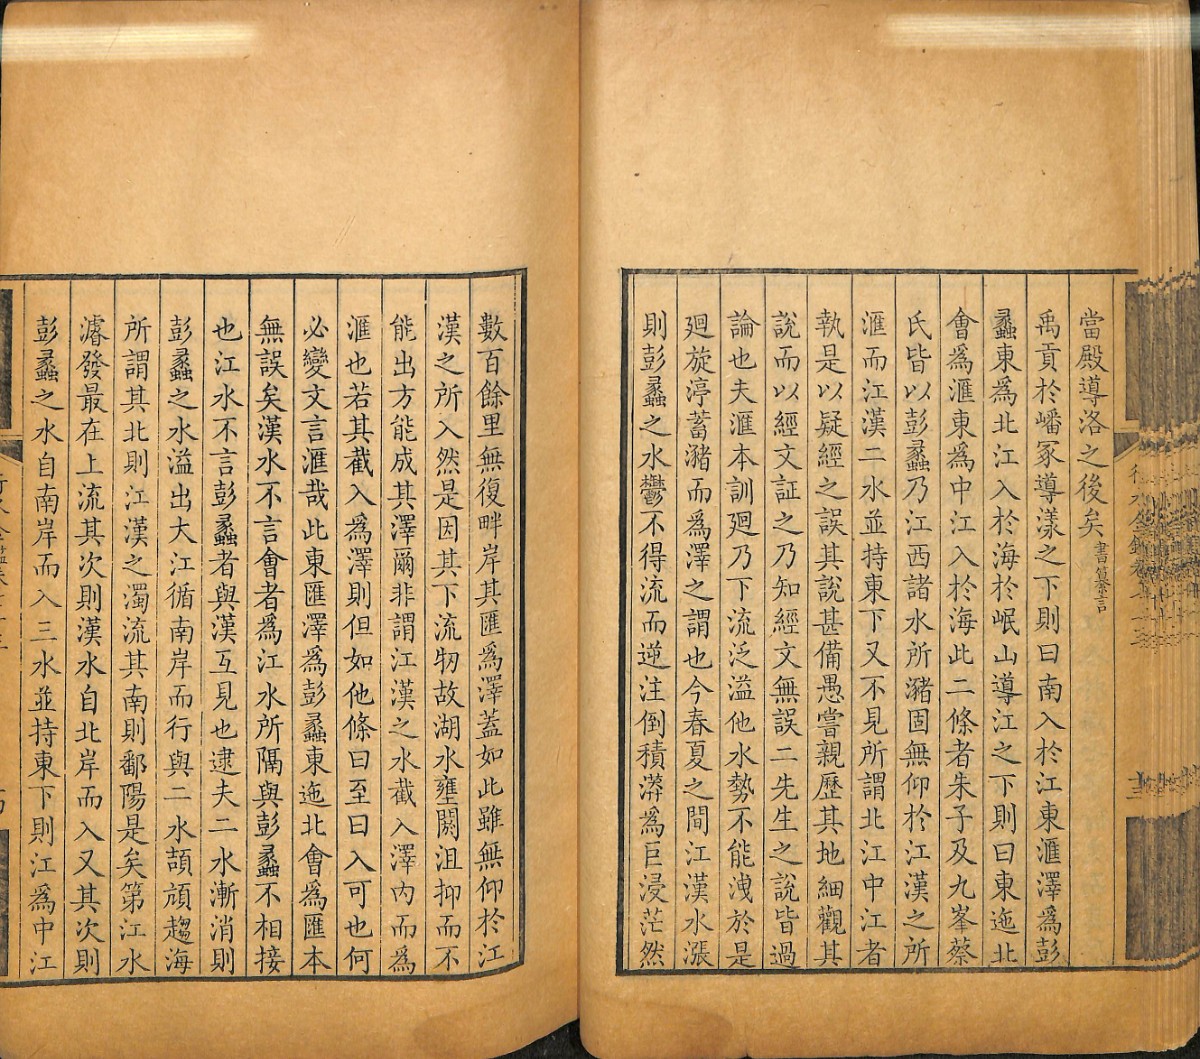 當殿導洛之後矣書纂言
禹貢於嶓冢導漾之下則曰南入於江東滙澤爲彭
蠡東爲北江入於海於岷山導江之下則曰東迤北
會爲滙東爲中江入於海此二條者朱子及九峯蔡
氏皆以彭蠡乃江西諸水所瀦固無仰於江漢之所
滙而江漢二水並持東下又不見所謂北江中江者
執是以疑經之誤其說甚備愚嘗親歷其地細觀其
說而以經文証之乃知經文無誤二先生之說皆過
論也夫滙本訓廻乃下流泛溢他水勢不能洩於是
廻旋渟蓄瀦而爲澤之謂也今春夏之間江漢水漲
則彭蠡之水鬱不得流而逆注倒積漭爲巨浸茫然
數百餘里無復畔岸其匯爲澤蓋如此雖無仰於江
漢之所入然是因其下流牣故湖水壅閼沮抑而不
能出方能成其澤爾非謂江漢之水截入澤内而爲
滙也若其截入爲澤則但如他條曰至曰入可也何
必變文言滙哉此東匯澤爲彭蠡東迤北會爲匯本
無誤矣漢水不言會者爲江水所隔與彭蠡不相接
也江水不言彭蠡者與漢互見也逮夫二水漸消則
彭蠡之水溢出大江循南岸而行與二水頡頏趨海
所謂其北則江漢之濁流其南則鄱陽是矣第江水
濬發最在上流其次則漢水自北岸而入又其次則
彭蠡之水自南岸而入三水並持東下則江爲中江